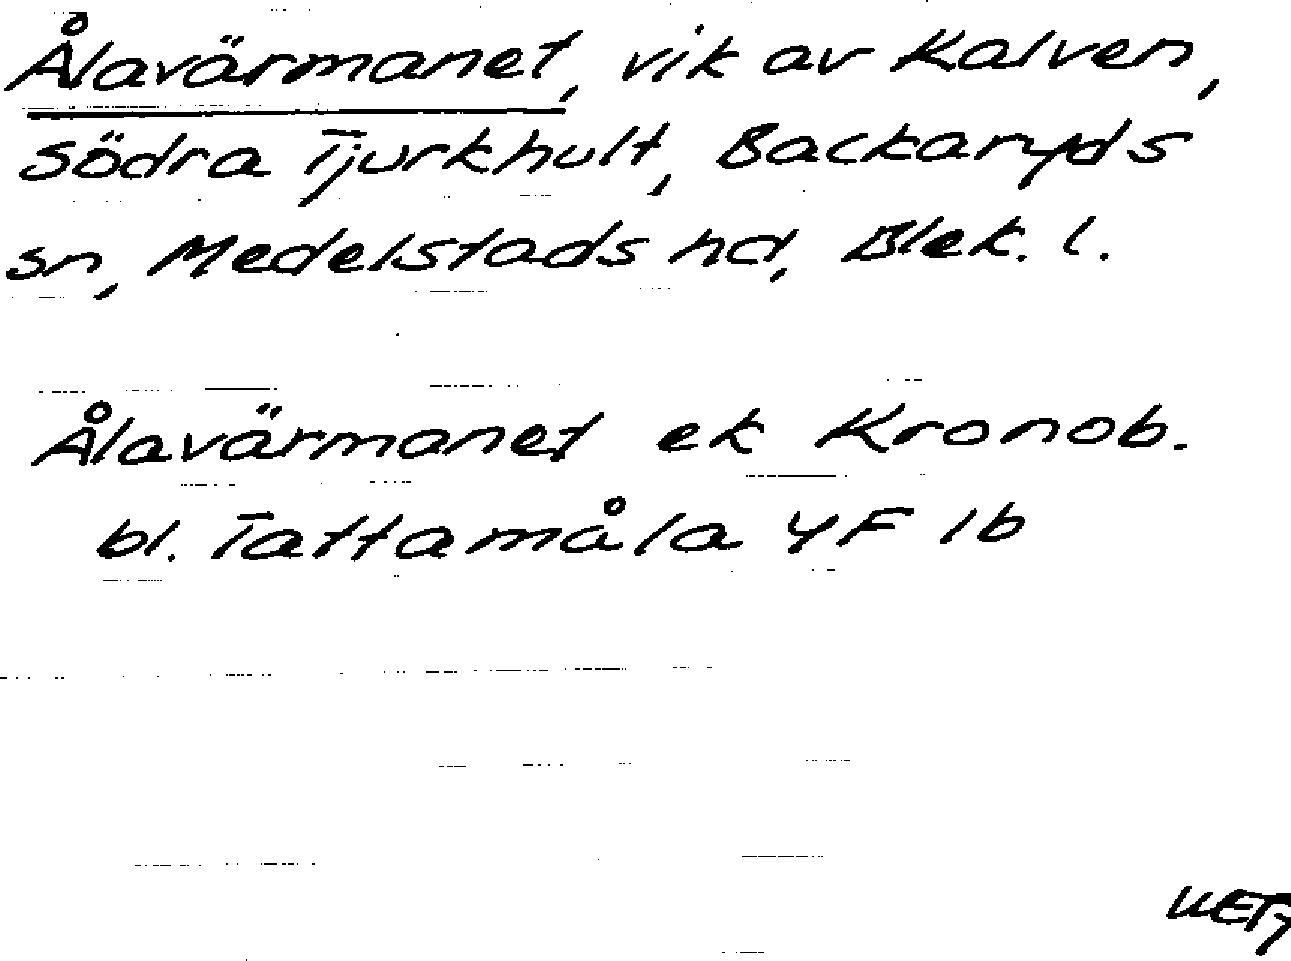 Ålavärmanet, vik av Kalven,
Södra Tjurkhult, Backaryds
sn, Medelstads hd, Blek. l.
Ålavärmanet ek Kronob.
bl. Tattamåla 4F 1b